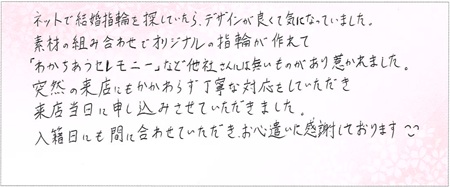 ネットで結婚指輪を探していたら、デザインが良くて気になっていました。
素材の組み合わせでオリジナルの指輪が作れて
「わかちあうセレモニー」など他社さんには無いものがあり惹かれました。
突然の来店にもかかわらず丁寧な対応をしていただき
来店当日に申し込みさせていただきました。
入籍日にも間に合わせていただき、お心遣いに感謝しております